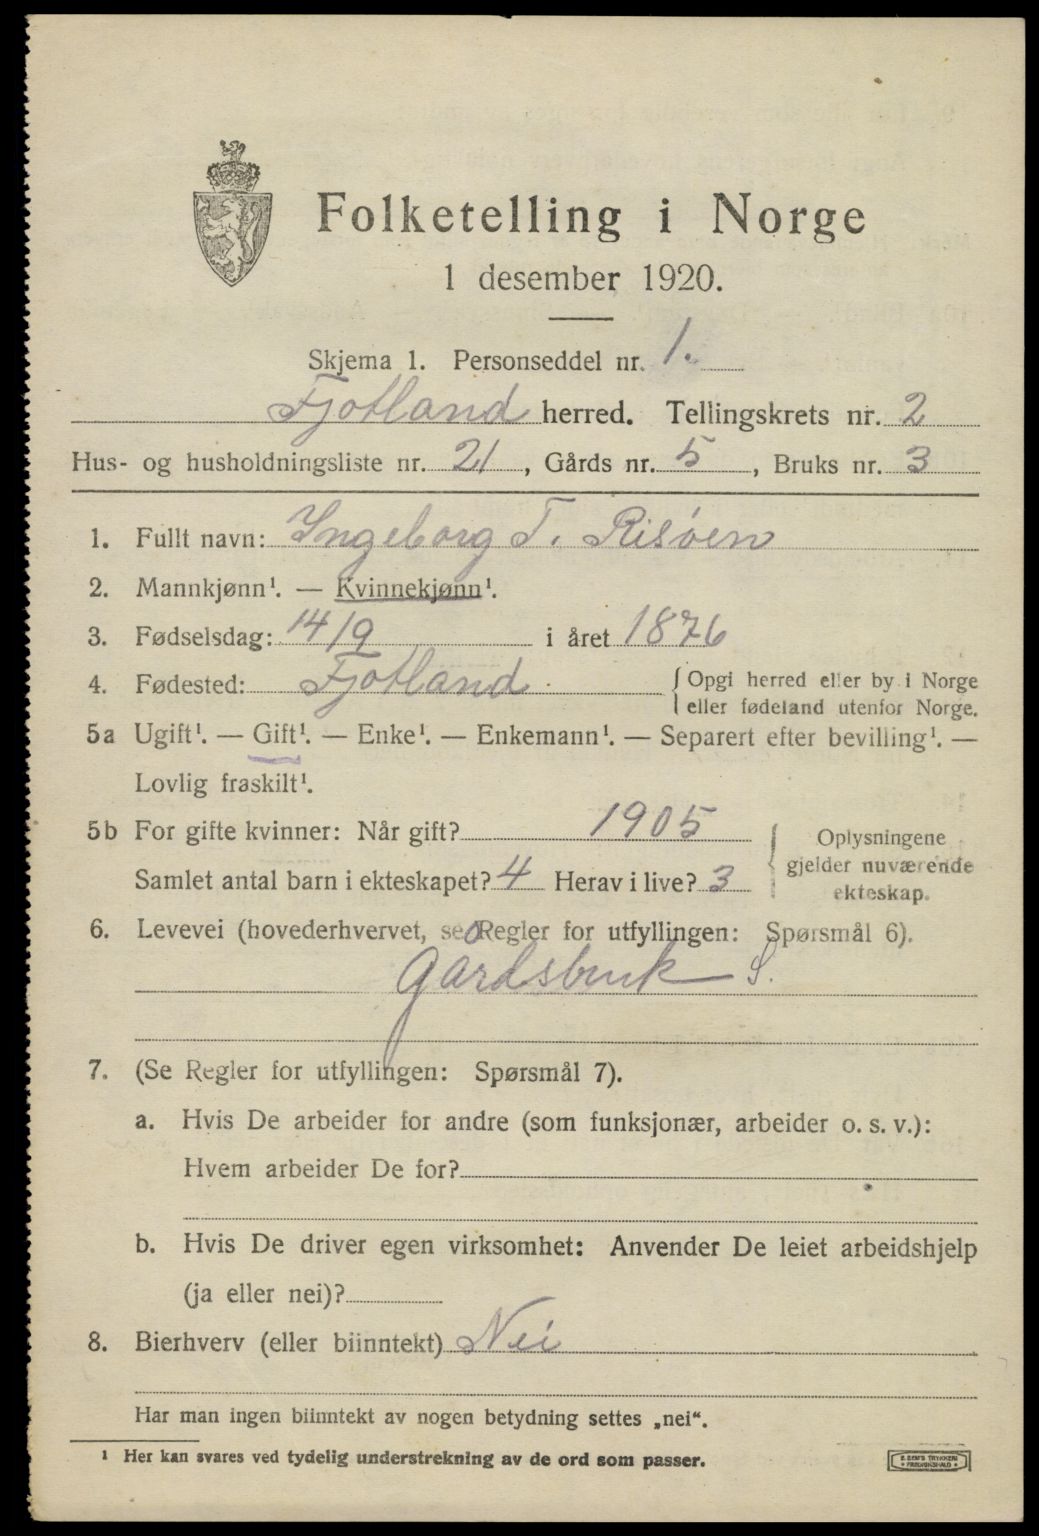 Folketelling i Norge
1 desember 1920.
Skjema 1. Personseddel nr. 1.
Fjotland herred. Tellingskrets nr. 2
Hus- og husholdningsliste nr. 21, Gårds nr. 5, Bruks nr. 3
1. Fullt navn: Ingeborg T. Risøen
2. Mannkjønn¹. — Kvinnekjønn¹.
3. Fødselsdag: 14/9 i året 1876
4. Fødested: Fjotland { Opgi herred eller by i Norge
eller fødeland utenfor Norge.
5a Ugift¹. — Gift¹. — Enke¹. — Enkemann¹. — Separert efter bevilling¹. —
Lovlig fraskilt¹.
5b For gifte kvinner: Når gift? 1905
Samlet antal barn i ekteskapet? 4 Herav i live? 3
{ Oplysningene
gjelder nuværende
ekteskap.
6. Levevei (hovederhvervet, se Regler for utfyllingen: Spørsmål 6).
Gårdsbruk S.
7. (Se Regler for utfyllingen: Spørsmål 7).
a. Hvis De arbeider for andre (som funksjonær, arbeider o. s. v.):
Hvem arbeider De for?
b. Hvis De driver egen virksomhet: Anvender De leiet arbeidshjelp
(ja eller nei)?
8. Bierhverv (eller biinntekt) Nei
Har man ingen biinntekt av nogen betydning settes „nei“.
¹ Her kan svares ved tydelig understrekning av de ord som passer.
TRYKKERI
FREDRIKSHALD